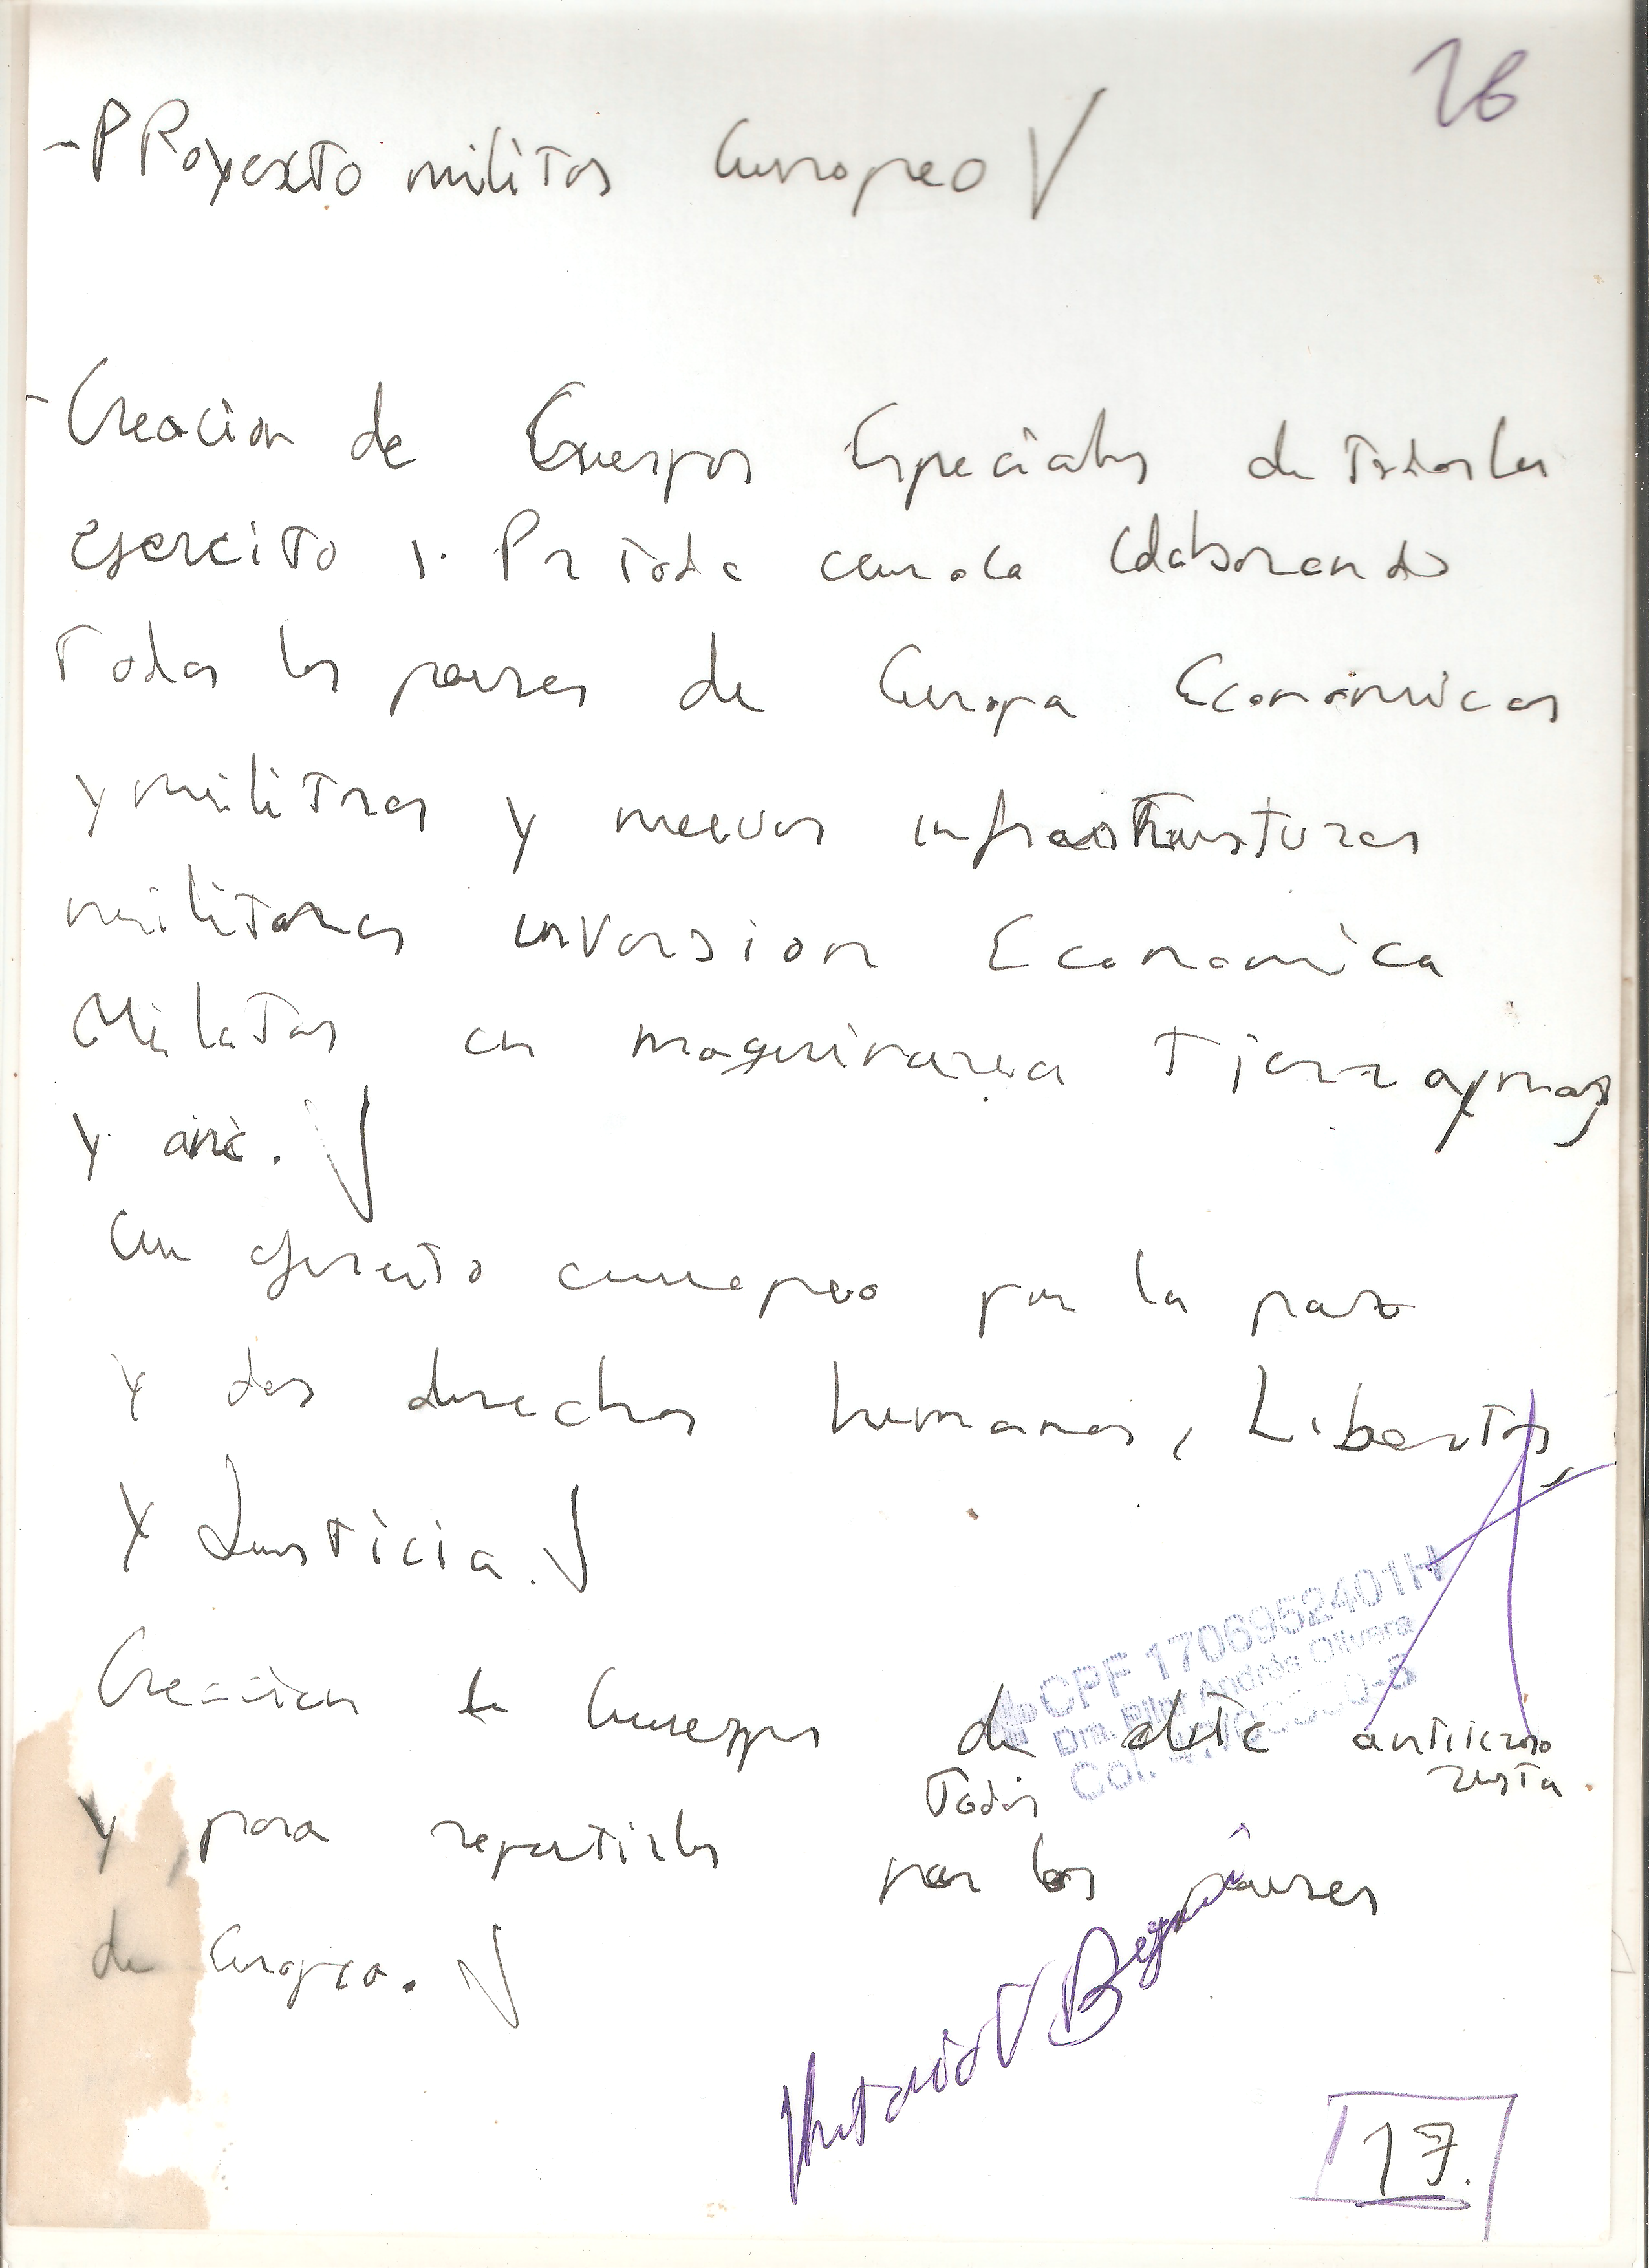 26
- PROyexto militar Europeo √
- Creacion de Cuerpos Especiales de todos los
ejercito y. Pr toda europa Colaborando
Todos los paises de Europa Economicas
y militras y nuevas infrastrusturas
militares inversion Economica
Militar en maquinarea Tierra y mar
y aire. √
un ejercito europeo por la paz
y dos derechos humanos, Libertad,
y Justicia. √
CPF 1706952401H
Creacion de Cuerpos de elite antiterro
rista.
Todos
y para repartirlos por los paises
de Europea. √
Antonio V
17.